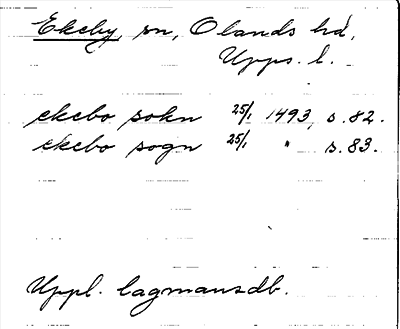 Ekeby, sn, Olands hd,
Upps. l.
ekebo sokn 25/1 1493, s. 82.
ekebo sogn 25/1 " s. 83.
Uppl. lagmansdb.